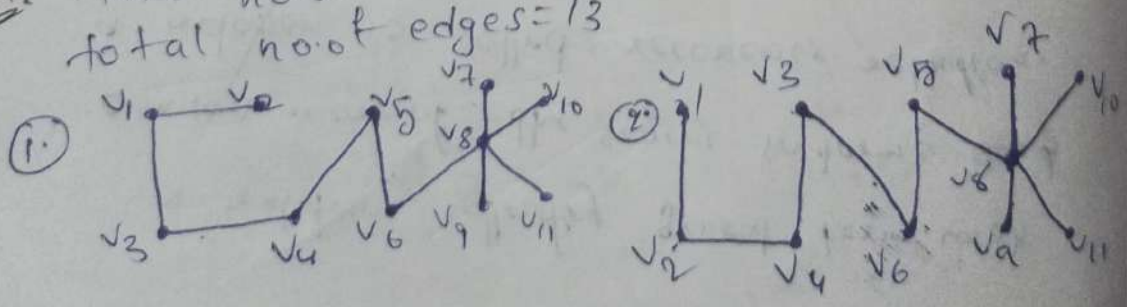 total no.of edges=13
1.
V1 V2 V5 V7 V8 V10
V3 V4 V6 V9 V11
2.
V1 V3 V5 V7 V10
V2 V4 V6 V8 V9 V11